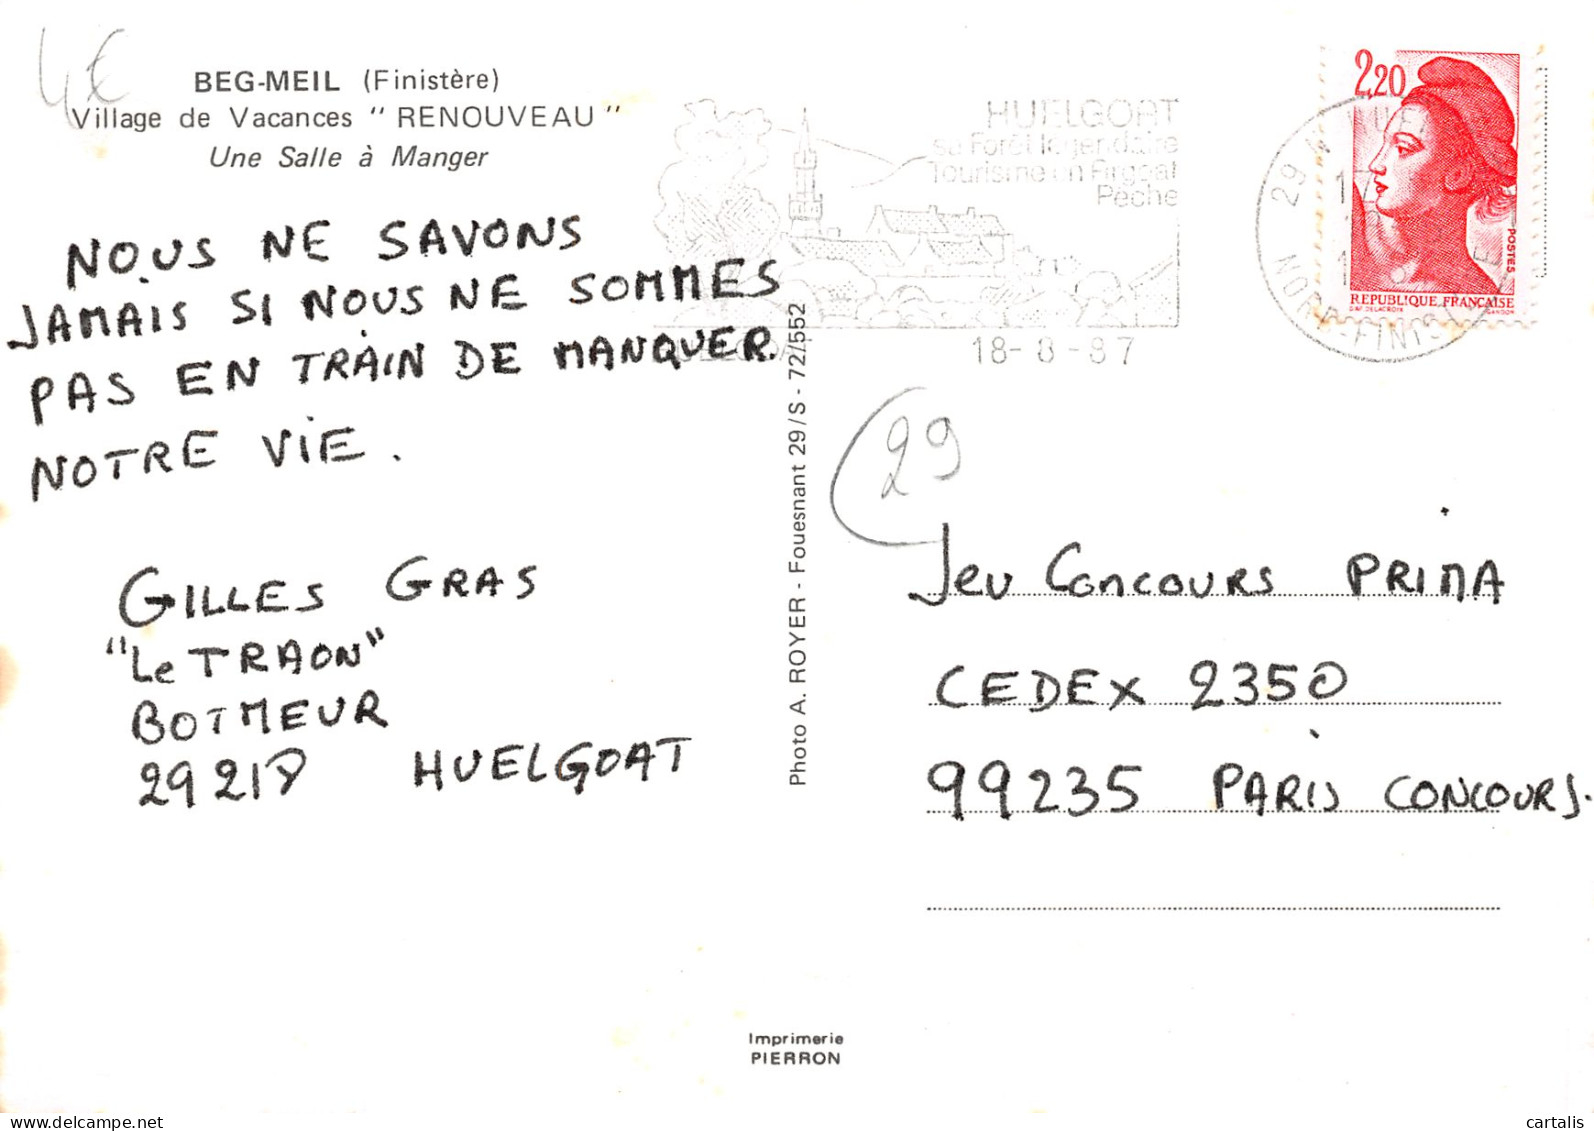 4€
BEG-MEIL (Finistère)
Village de Vacances "RENOUVEAU"
Une Salle à Manger
NOUS NE SAVONS
JAMAIS SI NOUS NE SOMMES
PAS EN TRAIN DE MANQUER
NOTRE VIE.
GILLES GRAS
"Le TRAON"
BOTMEUR
29218 HUELGOAT
HUELGOAT
sa Forêt légendaire
Tourisme en Argoat
Pêche
18-8-87
29
NORD-FINISTERE
2,20
POSTES
REPUBLIQUE FRANÇAISE
D'AP. DELACROIX
GANDON
Photo A. ROYER - Fouesnant 29/S - 72/552
29
Jeu Concours PRIMA
CEDEX 2350
99235 PARIS CONCOURS.
Imprimerie
PIERRON
cartalis
delcampe.net